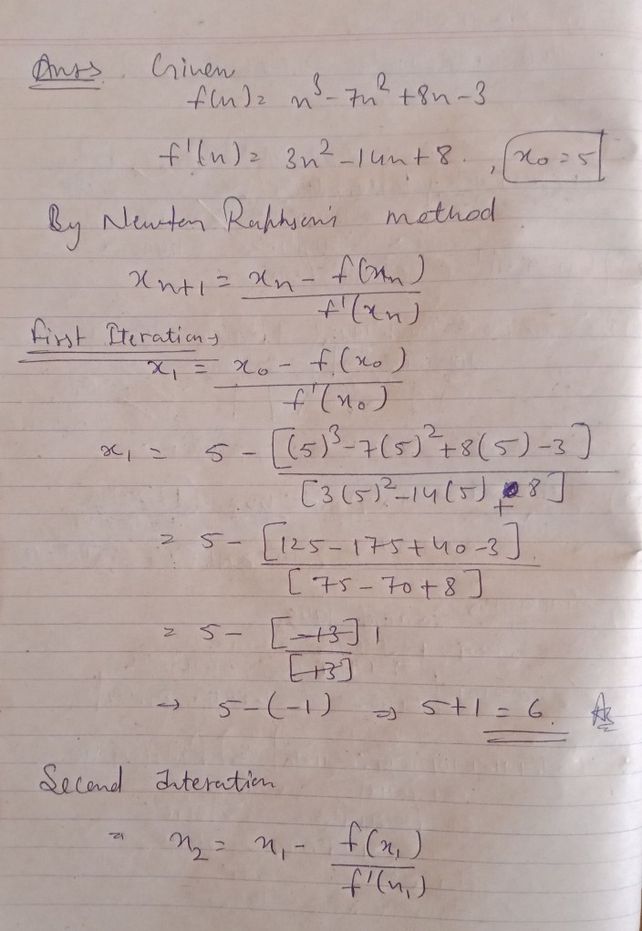 Ans. Given
f(n) = n³ - 7n² + 8n - 3
f'(n) = 3n² - 14n + 8. , x₀ = 5
By Newton Raphson's method
xₙ₊₁ = xₙ - f(xₙ) / f'(xₙ)
First Iteration,
x₁ = x₀ - f(x₀) / f'(x₀)
x₁ = 5 - [(5)³ - 7(5)² + 8(5) - 3] / [3(5)² - 14(5) + 8]
= 5 - [125 - 175 + 40 - 3] / [75 - 70 + 8]
= 5 - [-13] 1 / [+3]
→ 5 - (-1) ⇒ 5 + 1 = 6.
Second Interation
= n₂ = n₁ - f(n₁) / f'(n₁)